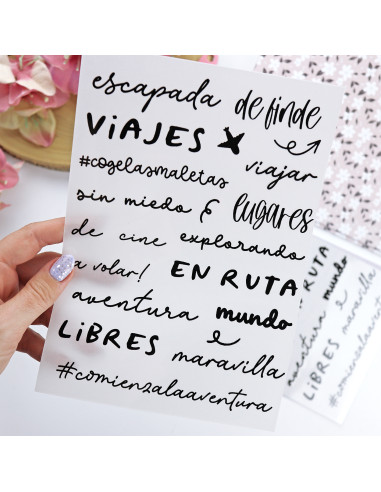 escapada de finde
VIAJES viajar
#cogelasmaletas
sin miedo & lugares
de cine explorando
a volar! EN RUTA
aventura mundo
LIBRES e maravilla
#comienzalaaventura
RUTA
mundo
aventura e
LIBRES maravilla
#comienzalaaventura